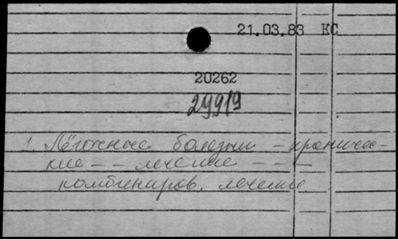 21.03.83 КС
20262
299/9
1. Лёгочные болезни – хрониčес-
кие – – лечение – – –
комбиниров. лечение